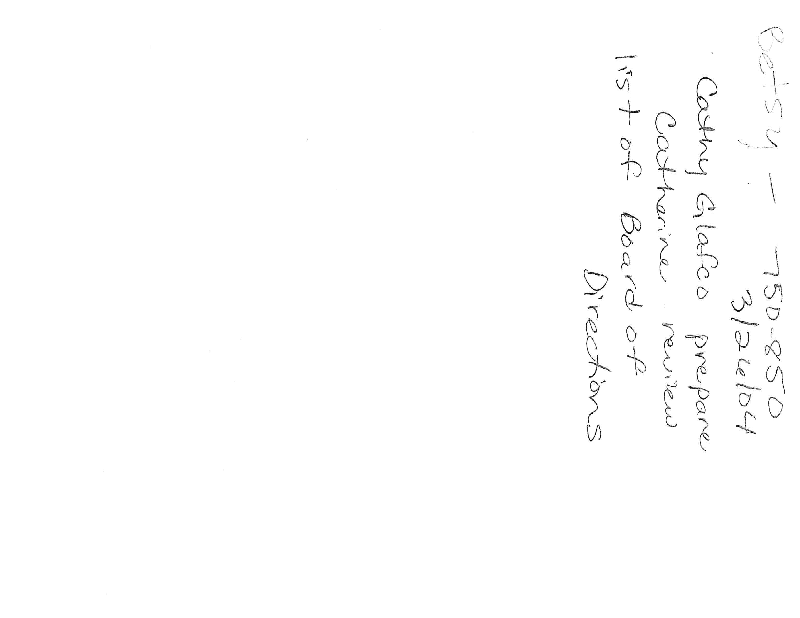 Betsy - 750-850
3/26/04
Cathy Glafco prepare
Catherine review
list of Board of
Directions